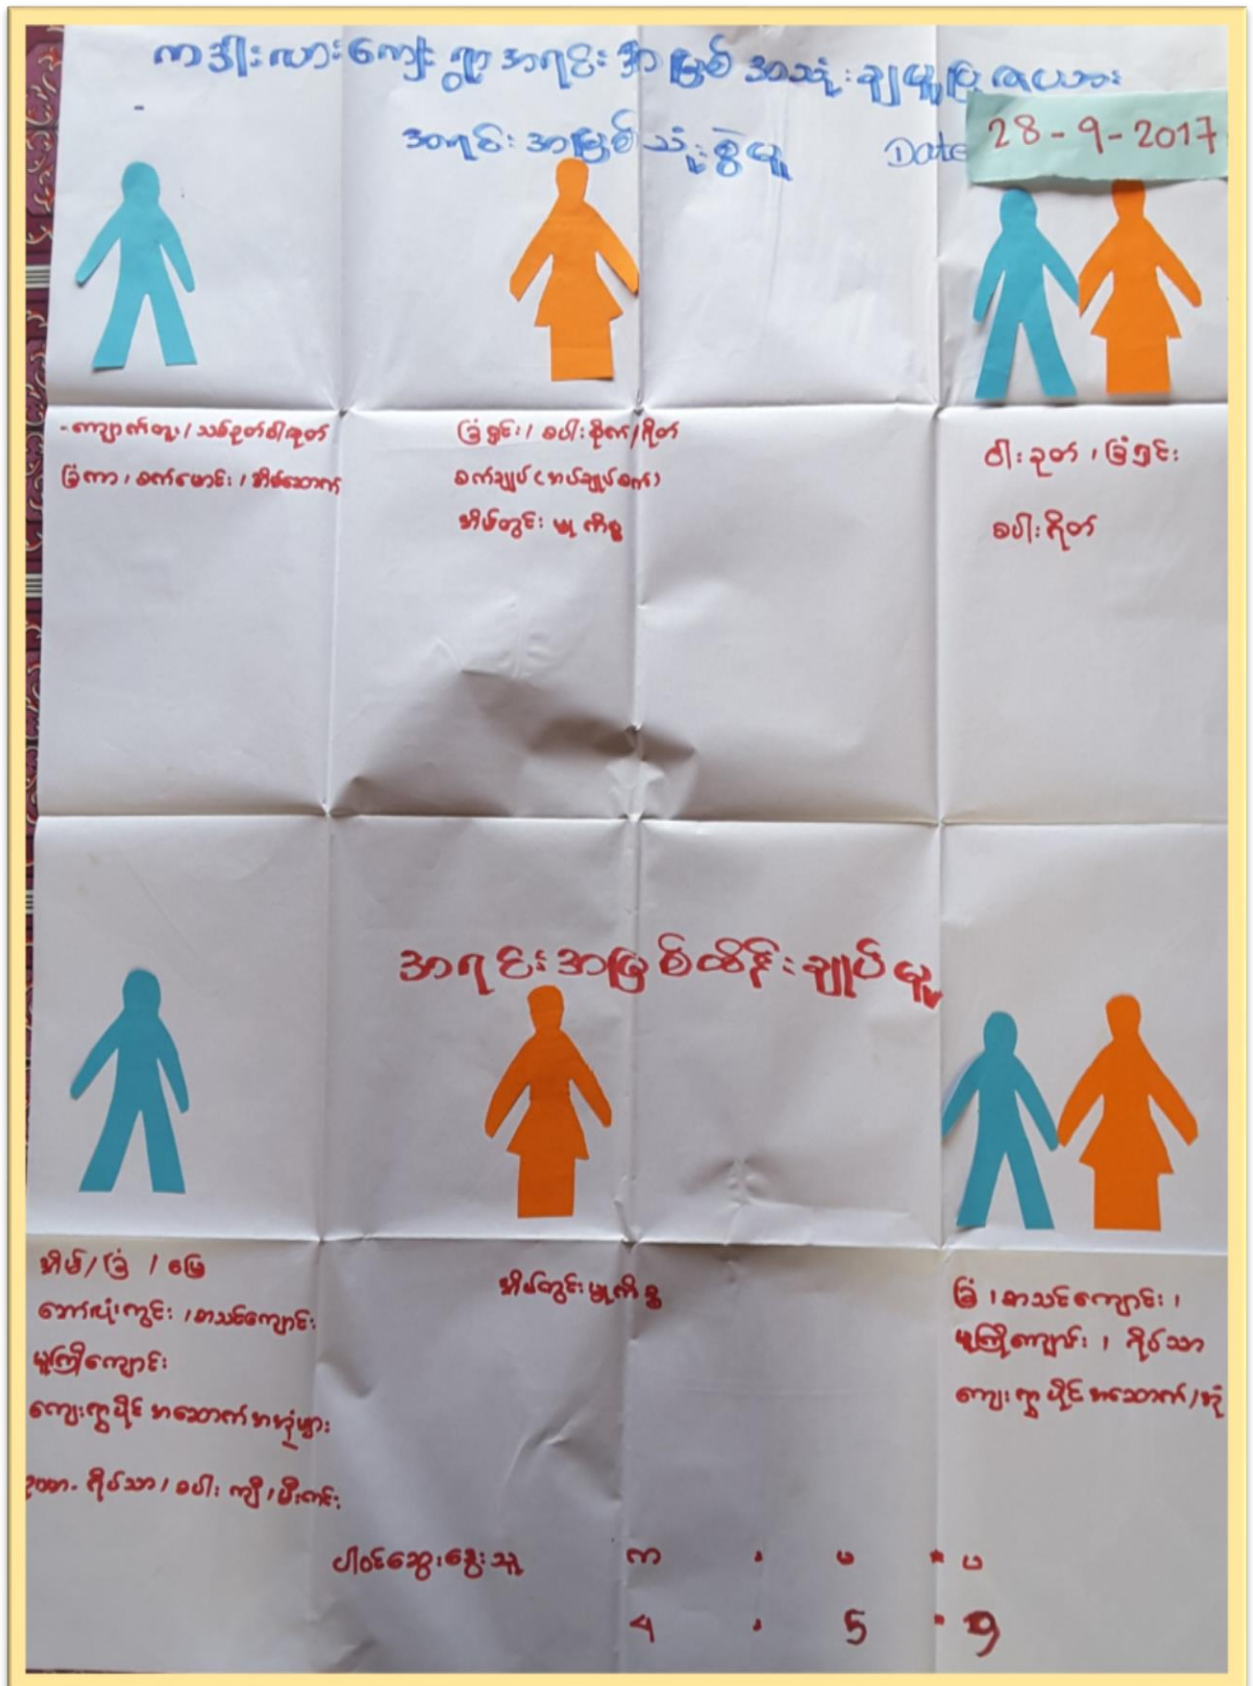 ကဒါးလားကျေးရွာ အရင်းအမြစ် အသုံးချမှုပြ ဇယား
အရင်းအမြစ်သုံးစွဲမှု Date 28-9-2017
- ကျောက်ထု / သစ်ခုတ်ဝါးခုတ်
ခြံကာ ၊ စက်မောင်း ၊ အိမ်ဆောက်
ခြံရှင်း / စပါးစိုက် / ရိတ်
စက်ချုပ် (အပ်ချုပ်စက်)
အိမ်တွင်းမှုကိစ္စ
ဝါးခုတ် ၊ ခြံရှင်း
စပါးရိတ်
အရင်းအမြစ်ထိန်းချုပ်မှု
အိမ် / ခြံ / မြေ
ဘောလုံးကွင်း ၊ စာသင်ကျောင်း
မူကြိုကျောင်း
ကျေးရွာပိုင် အဆောက်အအုံများ
ဥပမာ- ရိပ်သာ / စပါးကျီ ၊ မီးကင်း
အိမ်တွင်းမှုကိစ္စ
ခြံ ၊ စာသင်ကျောင်း ၊
မူကြိုကျောင်း ၊ ရိပ်သာ
ကျေးရွာပိုင် အဆောက်/အုံ
ပါဝင်ဆွေးနွေးသူ က . မ . ပ
4 . 5 . 9